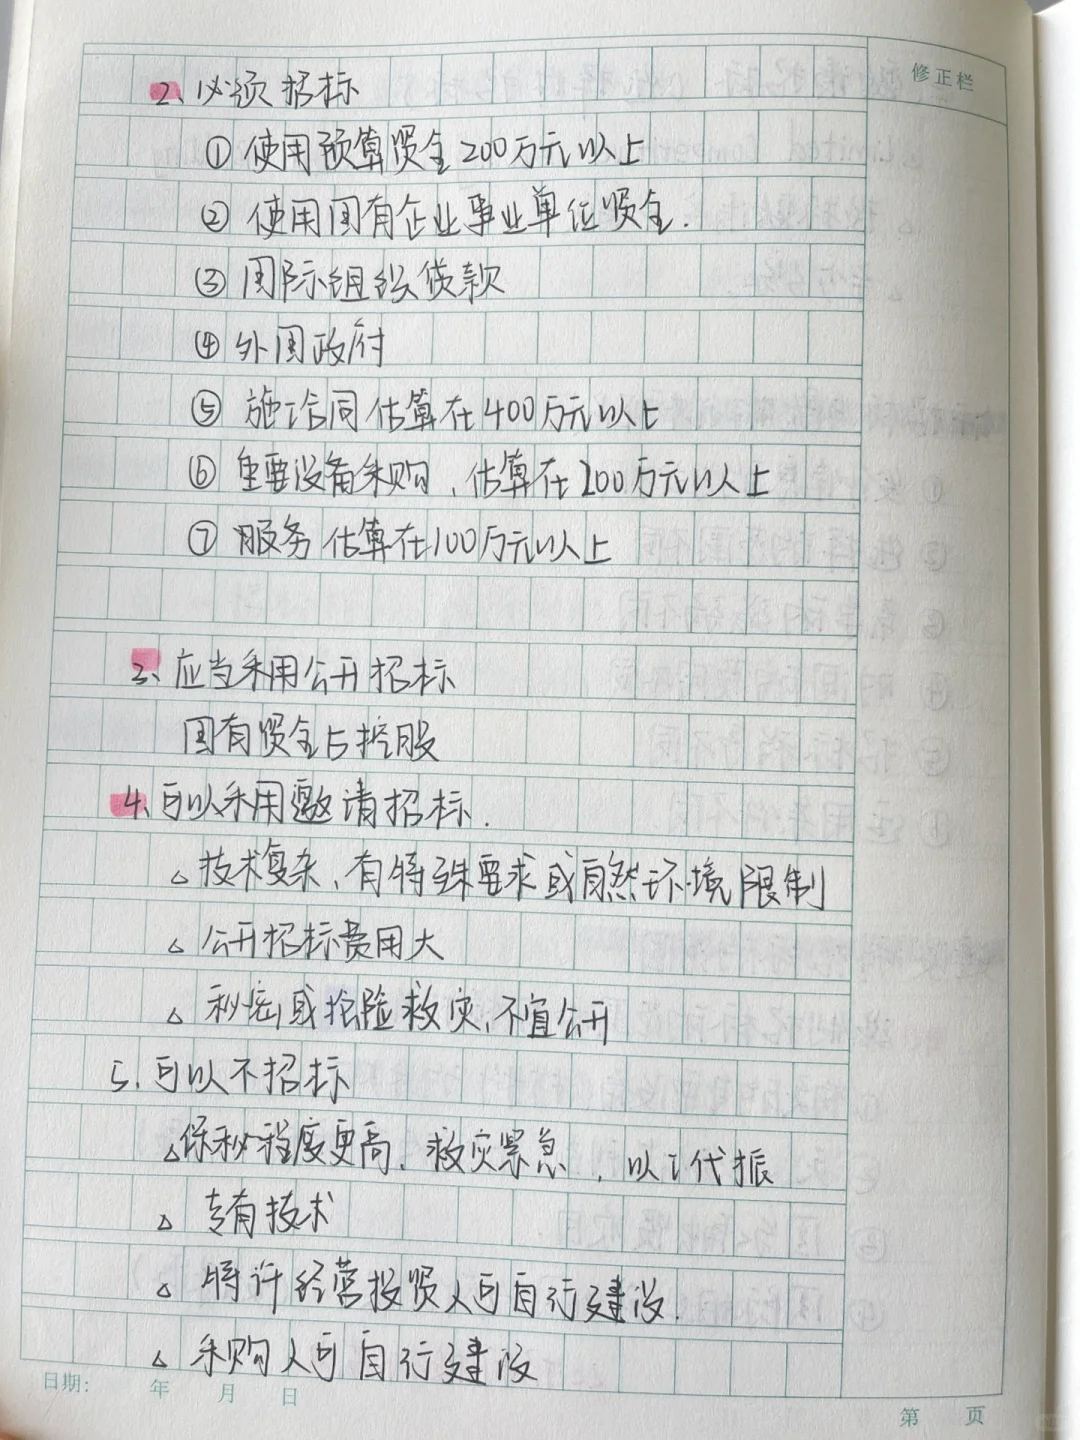 修正栏
2、必须招标
① 使用预算资金200万元以上
② 使用国有企业事业单位资金.
③ 国际组织贷款
④ 外国政府
⑤ 施工合同估算在400万元以上
⑥ 重要设备采购、估算在200万元以上
⑦ 服务估算在100万元以上
3、应当采用公开招标
国有资金占控股
4、可以采用邀请招标.
△技术复杂、有特殊要求或自然环境限制
△ 公开招标费用大
△ 秘密或抢险救灾、不宜公开
5.可以不招标
△保秘程度更高、救灾紧急,以工代振
△ 专有技术
△ 特许经营投资人可自行建设.
△ 采购人可自行建设
日期: 年 月 日
第 页